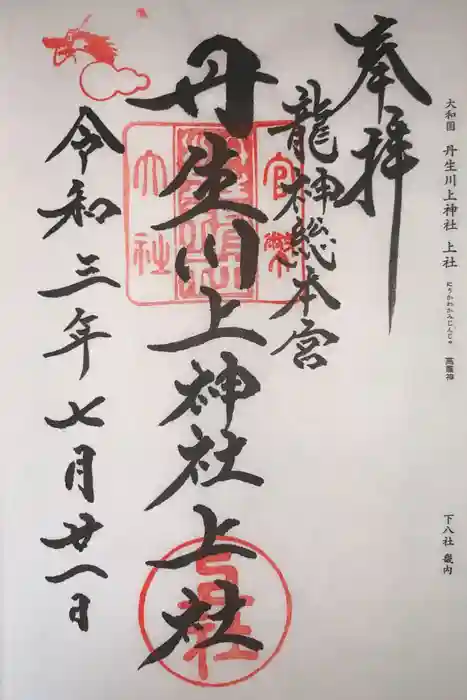 大和國 丹生川上神社 上社 高龗神
にうかわかみじんじゃ
下八社 畿内
奉拝
龍神総本宮
丹生川上神社上社
令和三年七月廿一日
官幣
大社